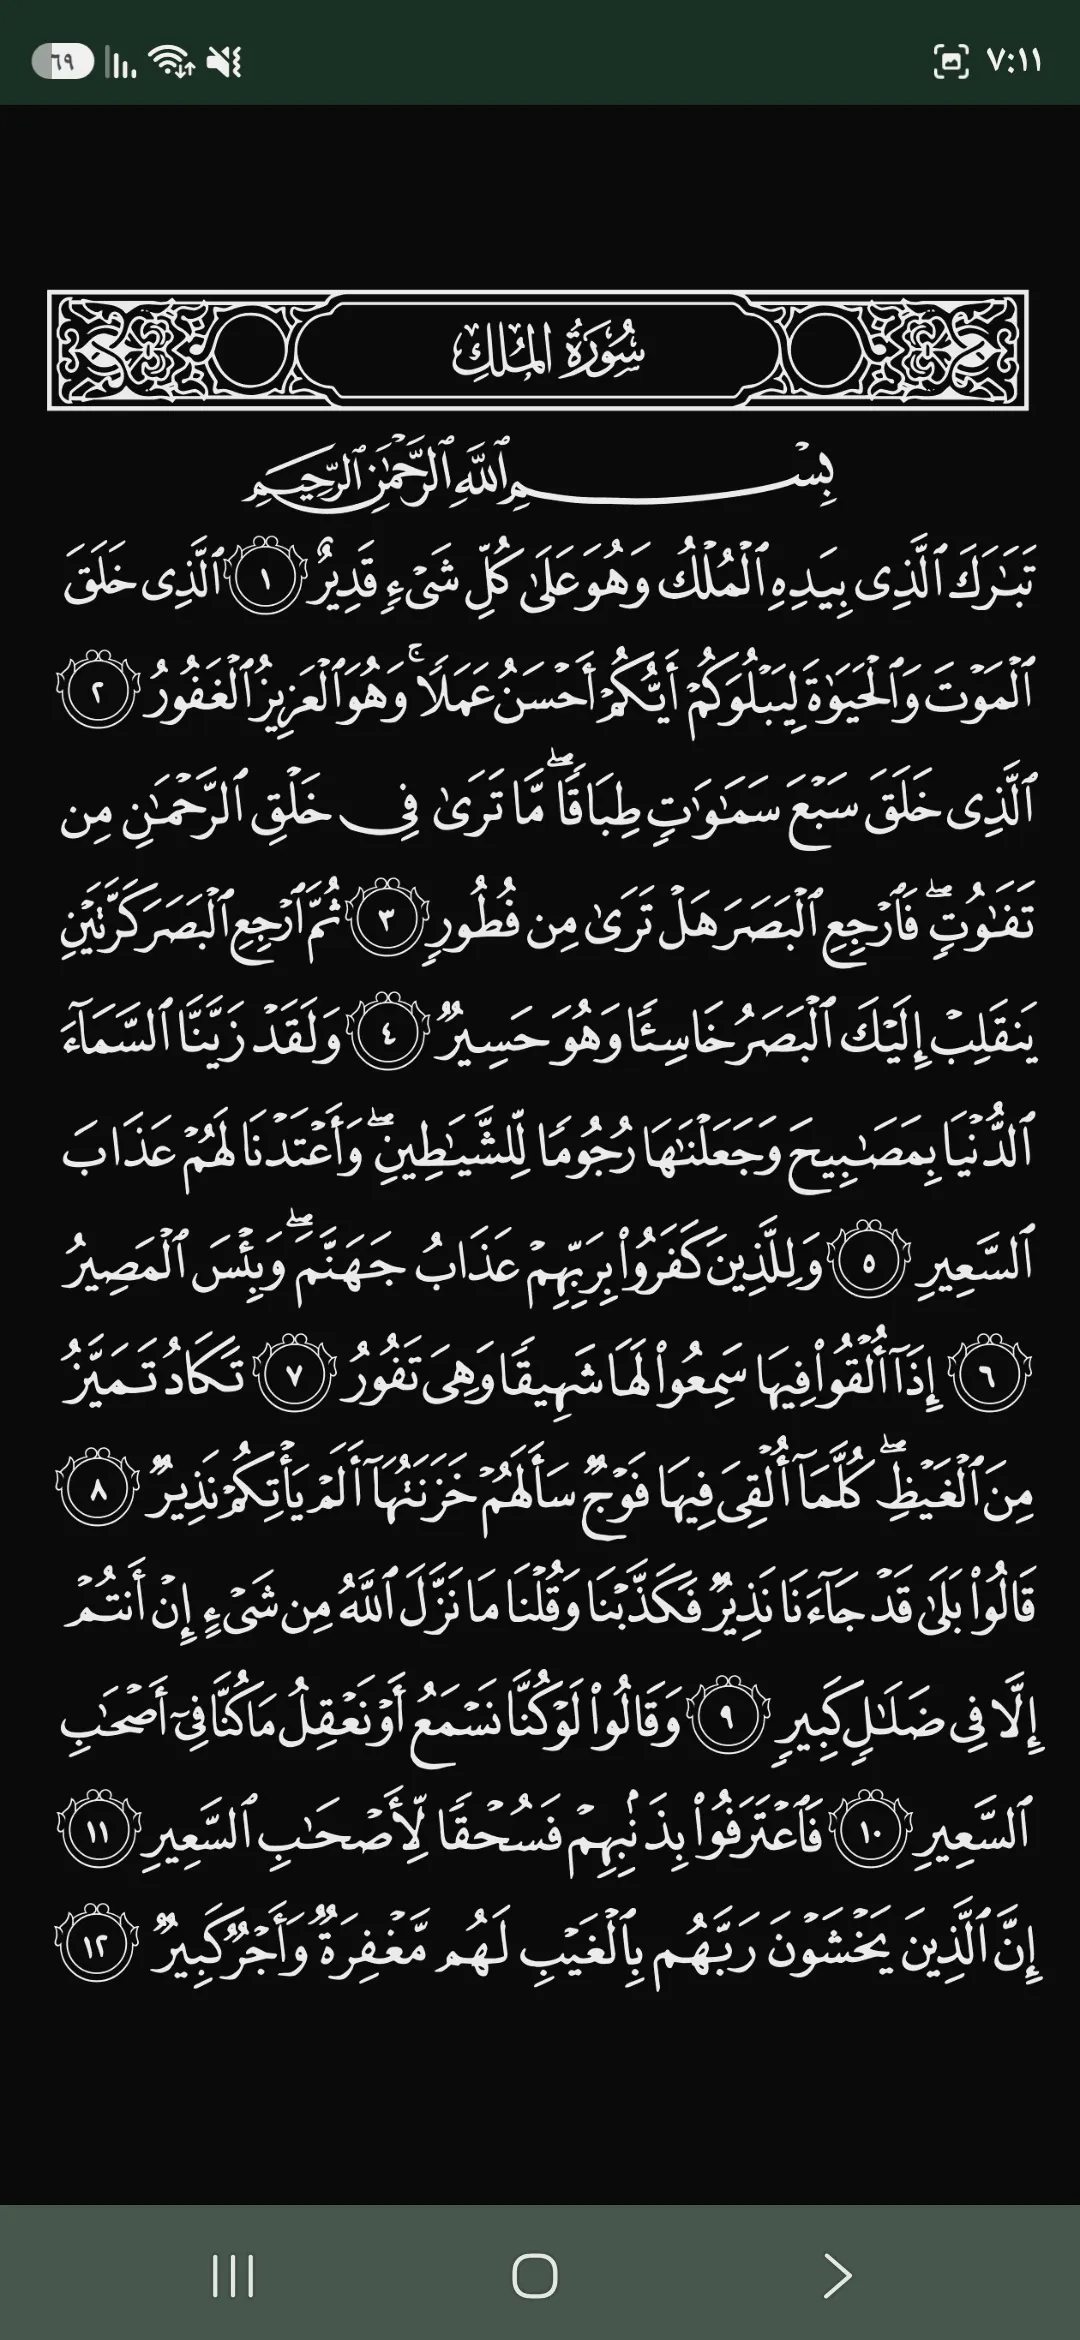 ٧:١١
٦٩
سُورَةُ المُلك
بِسْمِ ٱللَّهِ ٱلرَّحْمَٰنِ ٱلرَّحِيمِ
تَبَٰرَكَ ٱلَّذِى بِيَدِهِ ٱلْمُلْكُ وَهُوَ عَلَىٰ كُلِّ شَىْءٍ قَدِيرٌ ١ ٱلَّذِى خَلَقَ
ٱلْمَوْتَ وَٱلْحَيَوٰةَ لِيَبْلُوَكُمْ أَيُّكُمْ أَحْسَنُ عَمَلًا ۚ وَهُوَ ٱلْعَزِيزُ ٱلْغَفُورُ ٢
ٱلَّذِى خَلَقَ سَبْعَ سَمَٰوَٰتٍ طِبَاقًا ۖ مَّا تَرَىٰ فِى خَلْقِ ٱلرَّحْمَٰنِ مِن
تَفَٰوُتٍ ۖ فَٱرْجِعِ ٱلْبَصَرَ هَلْ تَرَىٰ مِن فُطُورٍ ٣ ثُمَّ ٱرْجِعِ ٱلْبَصَرَ كَرَّتَيْنِ
يَنقَلِبْ إِلَيْكَ ٱلْبَصَرُ خَاسِئًا وَهُوَ حَسِيرٌ ٤ وَلَقَدْ زَيَّنَّا ٱلسَّمَآءَ
ٱلدُّنْيَا بِمَصَٰبِيحَ وَجَعَلْنَٰهَا رُجُومًا لِّلشَّيَٰطِينِ ۖ وَأَعْتَدْنَا لَهُمْ عَذَابَ
ٱلسَّعِيرِ ٥ وَلِلَّذِينَ كَفَرُوا۟ بِرَبِّهِمْ عَذَابُ جَهَنَّمَ ۖ وَبِئْسَ ٱلْمَصِيرُ
٦ إِذَآ أُلْقُوا۟ فِيهَا سَمِعُوا۟ لَهَا شَهِيقًا وَهِىَ تَفُورُ ٧ تَكَادُ تَمَيَّزُ
مِنَ ٱلْغَيْظِ ۖ كُلَّمَآ أُلْقِىَ فِيهَا فَوْجٌ سَأَلَهُمْ خَزَنَتُهَآ أَلَمْ يَأْتِكُمْ نَذِيرٌ ٨
قَالُوا۟ بَلَىٰ قَدْ جَآءَنَا نَذِيرٌ فَكَذَّبْنَا وَقُلْنَا مَا نَزَّلَ ٱللَّهُ مِن شَىْءٍ إِنْ أَنتُمْ
إِلَّا فِى ضَلَٰلٍ كَبِيرٍ ٩ وَقَالُوا۟ لَوْ كُنَّا نَسْمَعُ أَوْ نَعْقِلُ مَا كُنَّا فِىٓ أَصْحَٰبِ
ٱلسَّعِيرِ ١٠ فَٱعْتَرَفُوا۟ بِذَنۢبِهِمْ فَسُحْقًا لِّأَصْحَٰبِ ٱلسَّعِيرِ ١١
إِنَّ ٱلَّذِينَ يَخْشَوْنَ رَبَّهُم بِٱلْغَيْبِ لَهُم مَّغْفِرَةٌ وَأَجْرٌ كَبِيرٌ ١٢